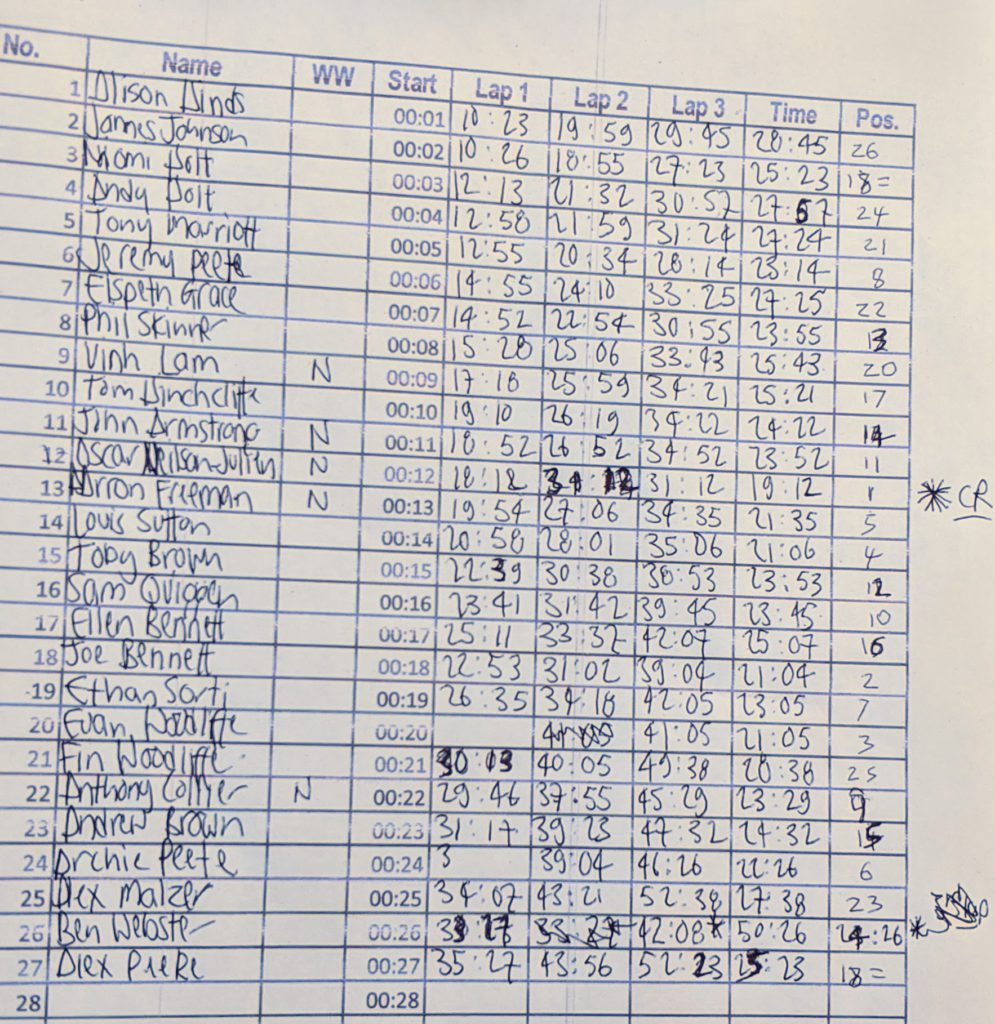 No. Name WW Start Lap 1 Lap 2 Lap 3 Time Pos.
1 Alison Hinds 00:01 10:23 19:59 29:45 28:45 26
2 James Johnson 00:02 10:26 18:55 27:23 25:23 18=
3 Naomi Bolt 00:03 12:13 21:32 30:57 27:57 24
4 Andy Bolt 00:04 12:58 21:59 31:24 27:24 21
5 Tony Marriott 00:05 12:55 20:34 28:14 23:14 8
6 Jeremy Peete 00:06 14:55 24:10 33:25 27:25 22
7 Elspeth Grace 00:07 14:52 22:54 30:55 23:55 13
8 Phil Skinner 00:08 15:28 25:06 33:43 25:43 20
9 Vinh Lam N 00:09 17:18 25:59 34:21 25:21 17
10 Tom Hinchcliffe 00:10 19:10 26:19 34:22 24:22 14
11 John Armstrong N 00:11 18:52 26:52 34:52 23:52 11
12 Oscar Neilson-Julien N 00:12 18:18 31:12 19:12 1 * CR
13 Arron Freeman N 00:13 19:54 27:06 34:35 21:35 5
14 Louis Sutton 00:14 20:58 28:01 35:06 21:06 4
15 Toby Brown 00:15 22:39 30:38 38:53 23:53 12
16 Sam Quiggen 00:16 23:41 31:42 39:45 23:45 10
17 Ellen Bennett 00:17 25:11 33:32 42:07 25:07 16
18 Joe Bennett 00:18 22:53 31:02 39:04 21:04 2
19 Ethan Sarti 00:19 26:35 34:18 42:05 23:05 7
20 Evan Woodliffe 00:20 41:05 21:05 3
21 Fin Woodliffe 00:21 30:03 40:05 49:38 28:38 25
22 Anthony Collyer N 00:22 29:46 37:55 45:29 23:29 9
23 Andrew Brown 00:23 31:17 39:23 47:32 24:32 15
24 Archie Peete 00:24 3 39:04 46:26 22:26 6
25 Alex Malzer 00:25 34:07 43:21 52:38 27:38 23
26 Ben Webster 00:26 33:27* 42:08* 50:26 24:26 *
27 Alex 00:27 35:27 43:56 52:23 25:23 18=
28 00:28